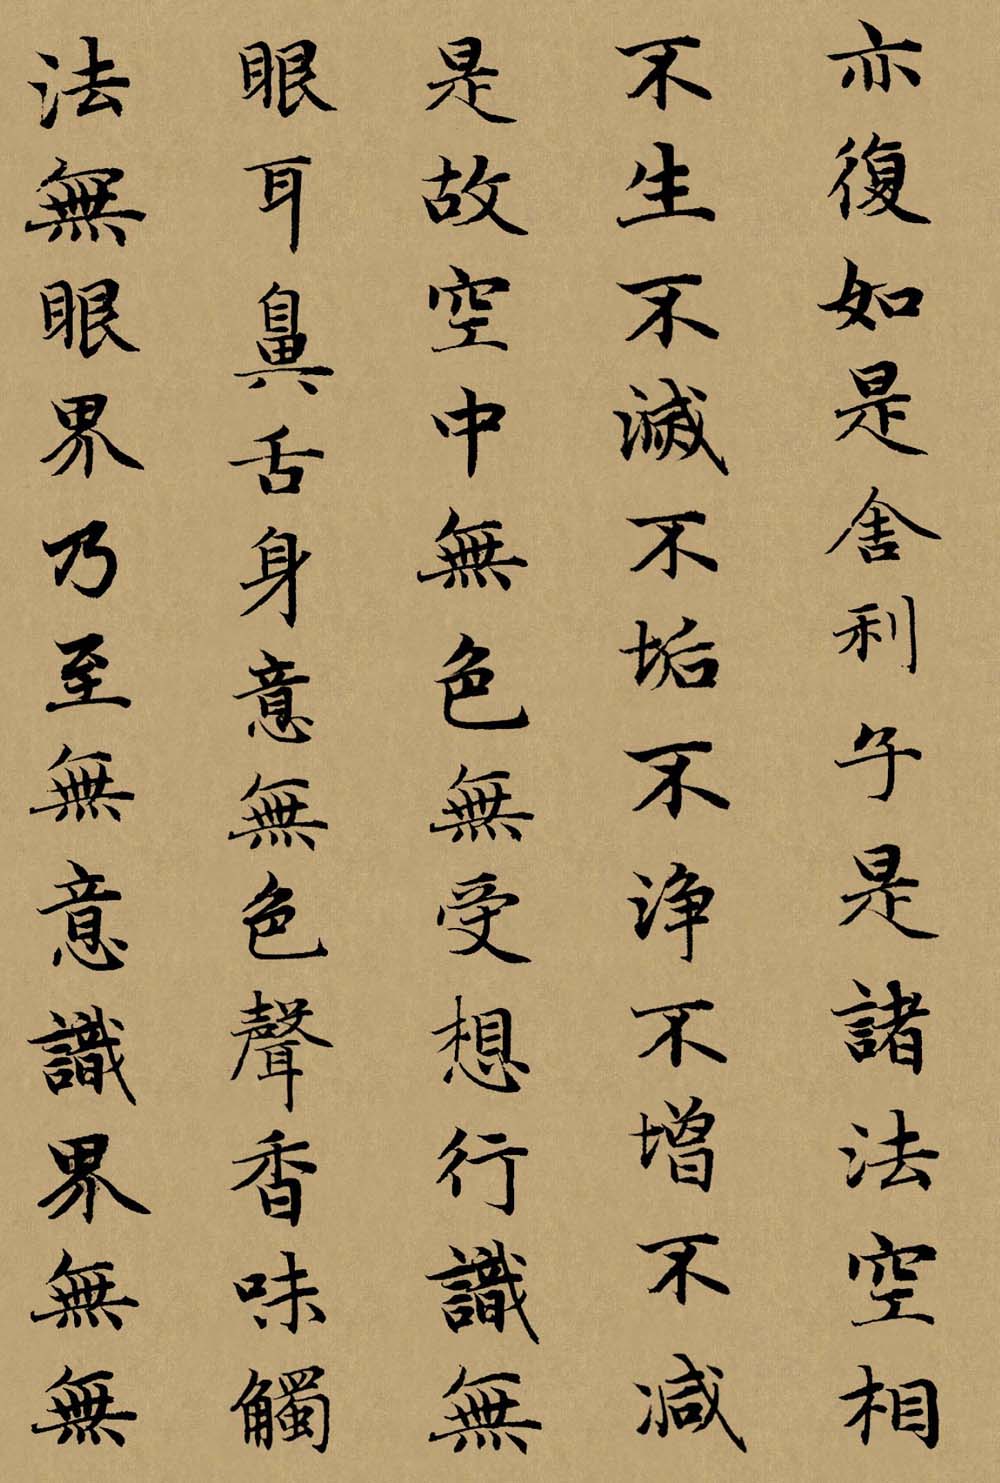 亦復如是舍利子是諸法空相
不生不滅不垢不淨不增不減
是故空中無色無受想行識無
眼耳鼻舌身意無色聲香味觸
法無眼界乃至無意識界無無